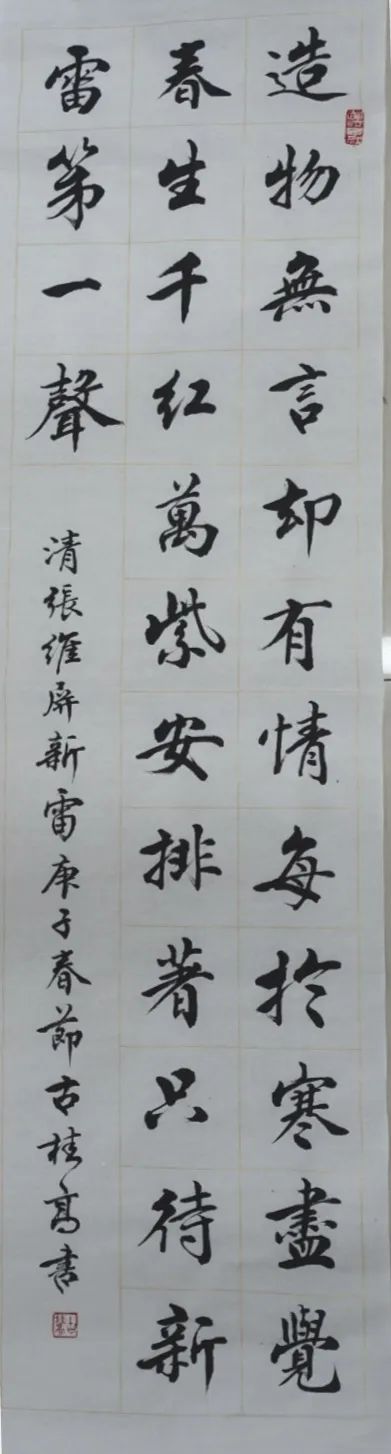 造物無言却有情每於寒盡覺
春生千红萬紫安排著只待新
雷第一聲
清張維屏新雷庚子春節古桂高書